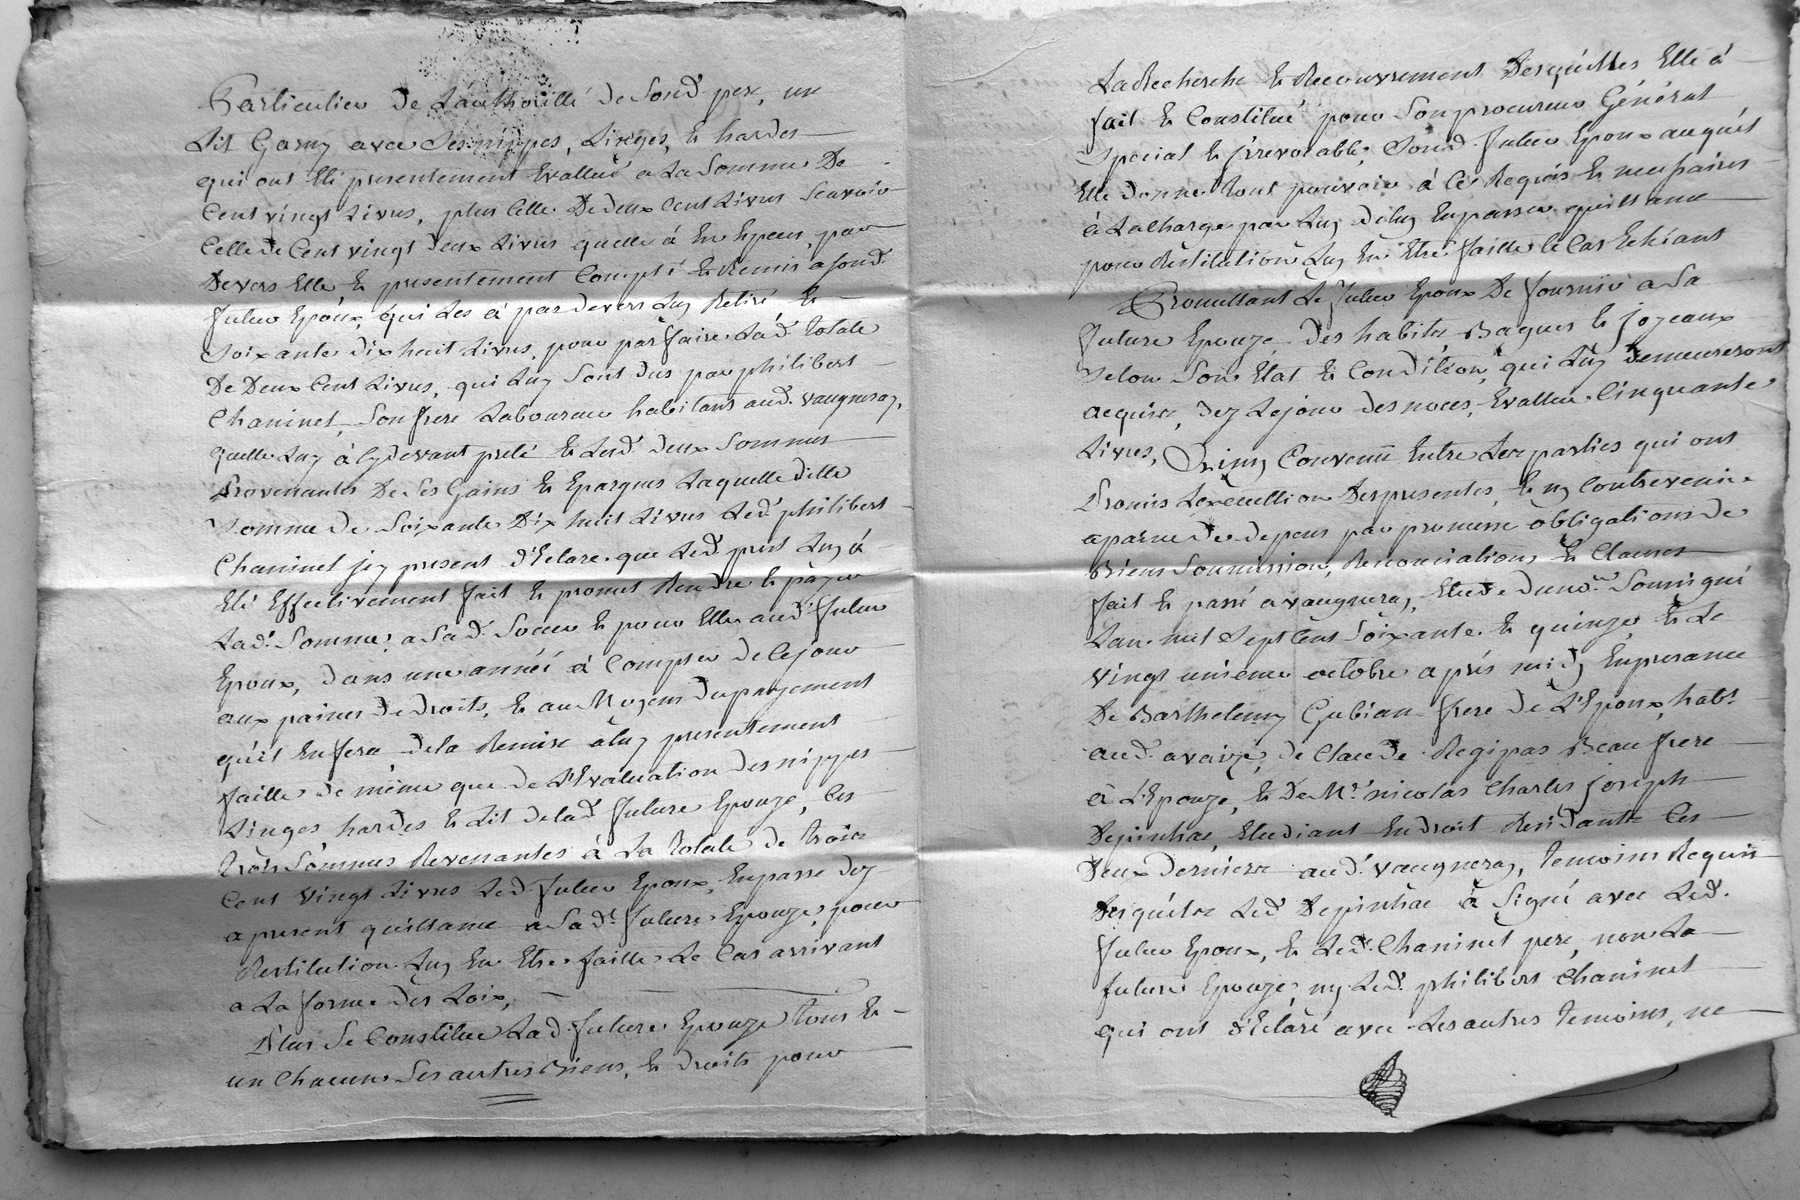 Particulier de Lauthorille de Sond. pere, un
Lit Garny avec Ses nippes, Linges, Et hardes
qui ont Eté presentement Evallué a La Somme De
Cent vingt Livres, plus Celle De deux Cent Livres Scavoir
Celle de Cent vingt deux Livres quelle á En Especes, par
Devers Elle Et presentement Compté Et Remis a Sond.
futur Epoux, qui Les á par devers Luy Retiré Et
Soixante dix huit Livres, pour parfaire Lad. totale
De Deux Cent Livres, qui Luy Sont dus par philibert
Chaninet, Son frere Laboureur habitant aud. vaugneray,
quelle Luy á Cydevant preté Et Lesd. deux Sommes
Provenantes De Ses Gains Et Epargnes Laquelle ditte
Somme de Soixante Dix huit Livres Led. philibert
Chaninet jcy present d'Eclare que Led. pret Luy á
Eté Effectivement fait Et promet Rendre Et payer
Lad. Somme, a Sad. Soeur Et pour Elle aud. futur
Epoux, dans une année á Compter de Cejour
aux paines de droits, Et au Moyens du payement
qu'il En fera de la Remise áluy presentement
faitte de même que de L'Evaluation des nippes
Linges hardes Et Lit de lad. future Epouze, Ces
trois Sommes Revenantes á La totale de trois
Cent Vingt Livres Led. futur Epoux, En passe dez
a present quittance a Sad. future Epouze, pour
Restitution Luy En Etre faitte Le Cas arrivant
a La forme des Loix,
Plus Se Constitue Lad. future Epouze tous Et
un Chacuns Ses autres Biens, Et droits pour
La Recherche Et Recouvrement Desquelles Elle á
fait Et Constitué pour Son procureur Général
Special Et jrrevocable, Sond. futur Epoux auquel
Elle donne tout pouvoir á Ce Requis Et necessaires
á La Charge par Luy de luy En passer quittance
pour Restitution Luy En Etre faitte le Cas Echéant
Promettant Le futur Epoux De fournir a Sa
future Epouze des habits Bagues Et joyeaux
Selon Son Etat Et Condition, qui Luy Demeureront
acquis, dez Lejour des noces, Evallué Cinquante
Livres, Ainsy Convenu Entre Les parties qui ont
Promis Lexecution Des presentes, Et ny Contrevenir
apaine de depens par promesse obligations de
Biens Soumission, Renonciations Et Clauses
fait Et passé a vaugneray, Etude dund. Soussigné
Lan mil Sept Cent Soixante Et quinze Et Le
Vingt unieme octobre après midy En presence
De Barthelemy Gubian frere de L'Epoux, habt.
aud. avaize, de Claude Regipas Beau frere
á L'Epouze, Et De Mr. nicolas Charles joseph
Depinhac, Etudiant En droit Residants Ces
Deux Derniers aud. vaugneray, temoins Requis
Desquels Led. Depinhac á Signé avec Led.
futur Epoux, Et Led. Chaninet pere, non La
future Epouze ny Led. philibert Chaninet
qui ont d'Eclaré avec Les autres temoins, ne